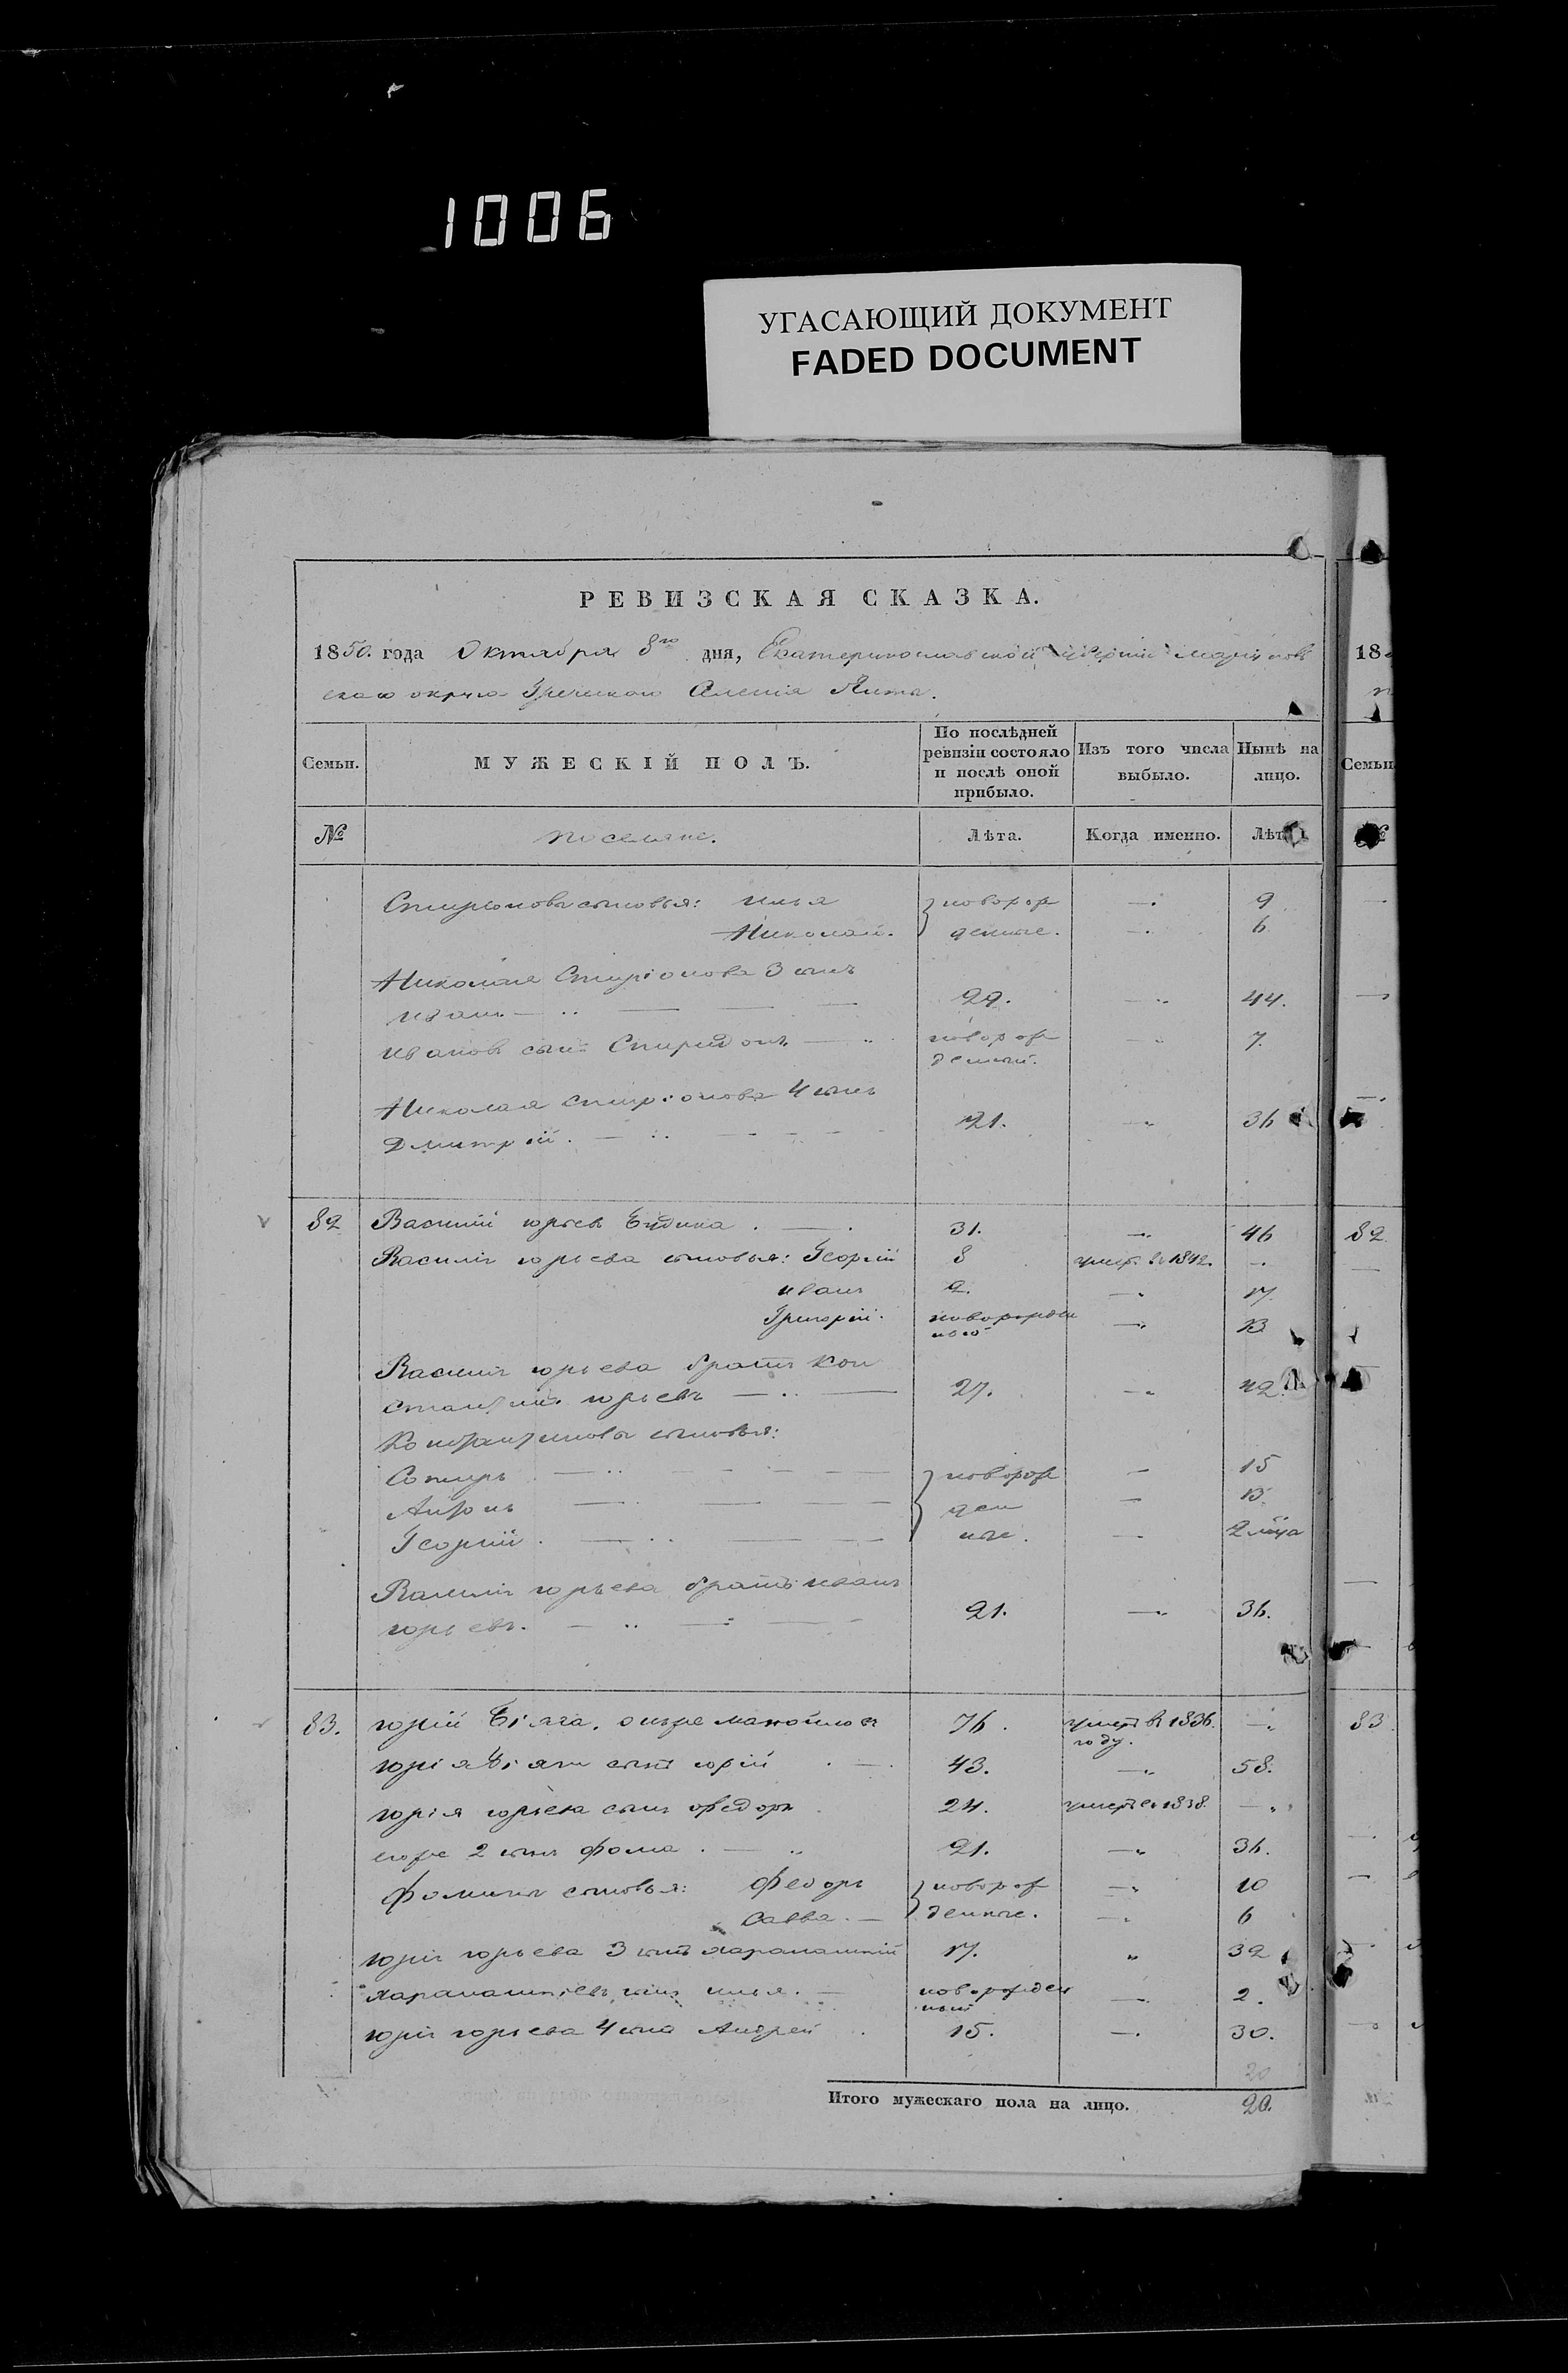 1006
УГАСАЮЩИЙ ДОКУМЕНТ
FADED DOCUMENT
РЕВИЗСКАЯ СКАЗКА.
1850. года Октября 8го дня, Екатеринославской губерніи
округа Греческого Селенія Ялты.
Семьи. МУЖЕСКІЙ ПОЛЪ. По послѣдней ревизіи состояло и послѣ оной прибыло. Изъ того числа выбыло. Нынѣ на лицо.
№ поселяне. Лѣта. Когда именно. Лѣта
сыновья: илья новорож 9
Николай. денные. 6
Николая 3 сынъ
иванъ 29. 44.
ивановъ сынъ Спиридонъ новорож 7.
денный.
Николая 4 сынъ
Дмитрій. 21. 36
82 Василій юрьевъ 31. 46
Василія юрьева сыновья: Георгій 8 умер. въ 1842.
иванъ 2. 17.
Григорій. новорожден 13
ный
Василія юрьева братъ Кон
стантинъ юрьевъ 27. 42.
Константиновы сыновья:
Сотиръ новорож 15
Антонъ ден 13.
Георгій. ные. 2 мца
Василія юрьева братъ иванъ
юрьевъ. 21. 36.
83. юрій 76. умеръ въ 1836.
году.
юрія сынъ юрій 43. 58.
юрія юрьева сынъ Федоръ 24. умеръ въ 1838.
его же 2 сынъ Фома 21. 36.
Фомины сыновья: Федоръ новорож 10
Савва. денные. 6
юрія юрьева 3 сынъ Харалампій 17. 32
Харалампіевъ сынъ илья. новорожден 2.
ный
юрія юрьева 4 сынъ Андрей 15. 30.
20
Итого мужескаго пола на лицо. 20.
18
Семьи
№
82
83